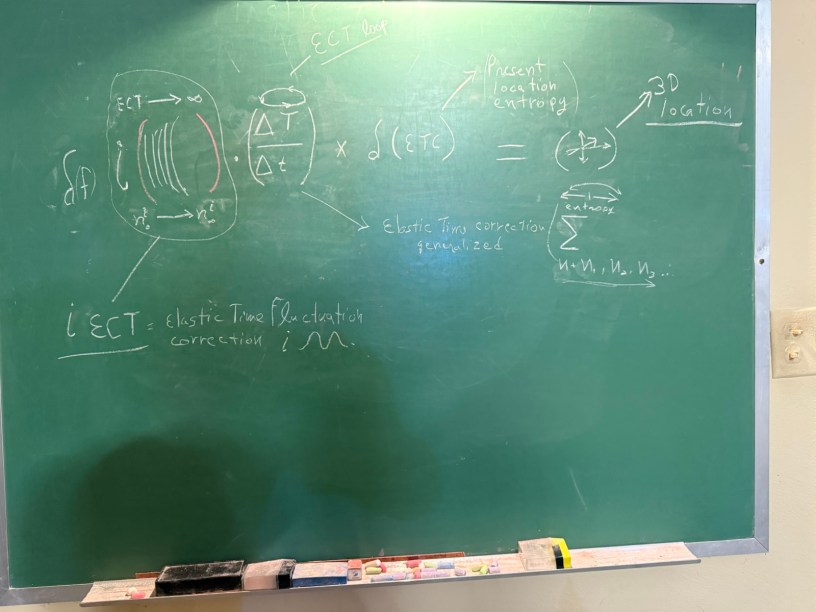 ECT loop
Present
location
entropy
3D
location
ECT → ∞
i
ΔT
Δt
× δ (ETC) =
δ(f)
Elastic Time correction
generalized
entropy
Σ
n = n₁, n₂, n₃ ...
i ECT = Elastic Time Fluctuation
correction i